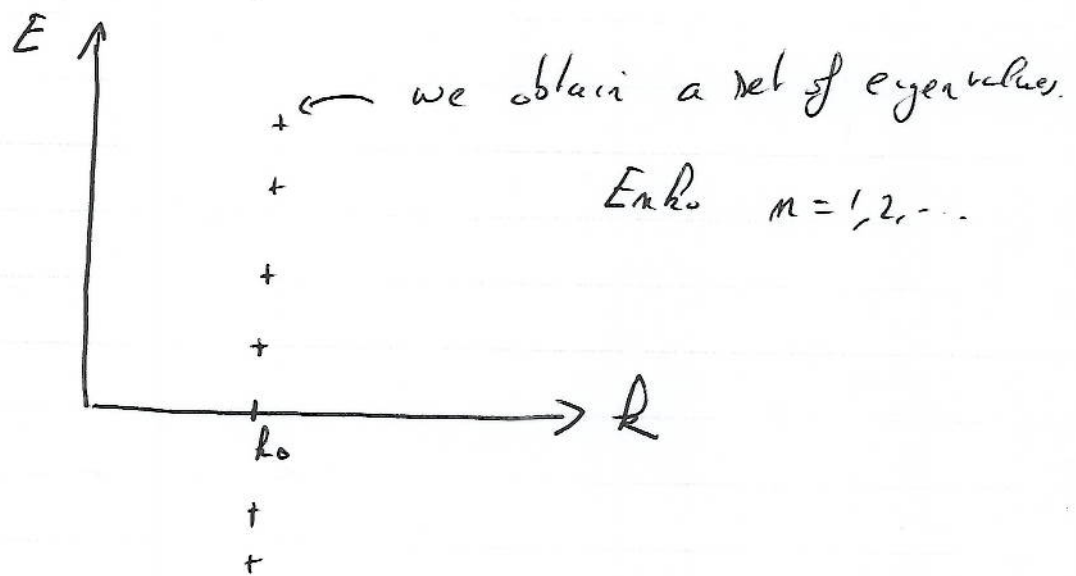 E
we obtain a set of eigenvalues.
Enk₀ n = 1, 2, ...
k
k₀